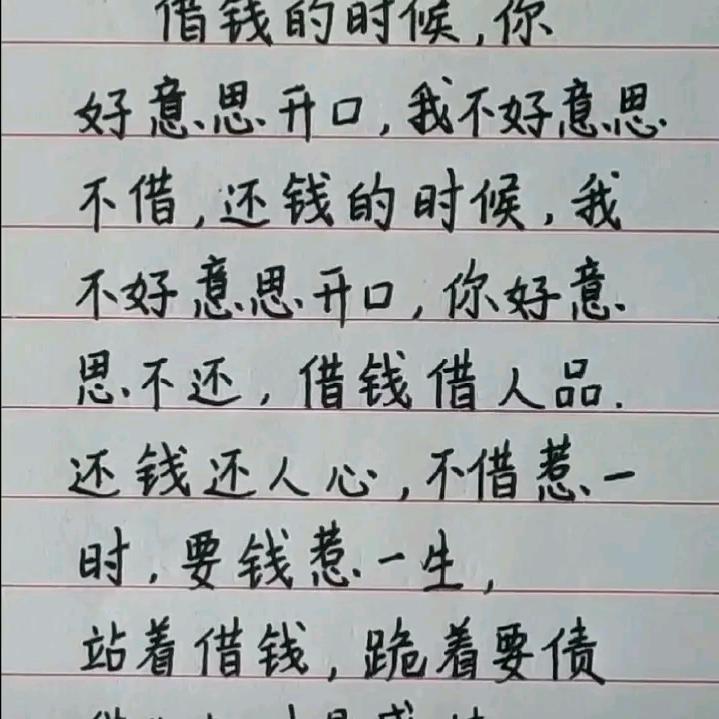 借钱的时候,你
好意思开口,我不好意思
不借,还钱的时候,我
不好意思开口,你好意
思不还,借钱借人品.
还钱还人心,不借惹一
时,要钱惹一生,
站着借钱,跪着要债